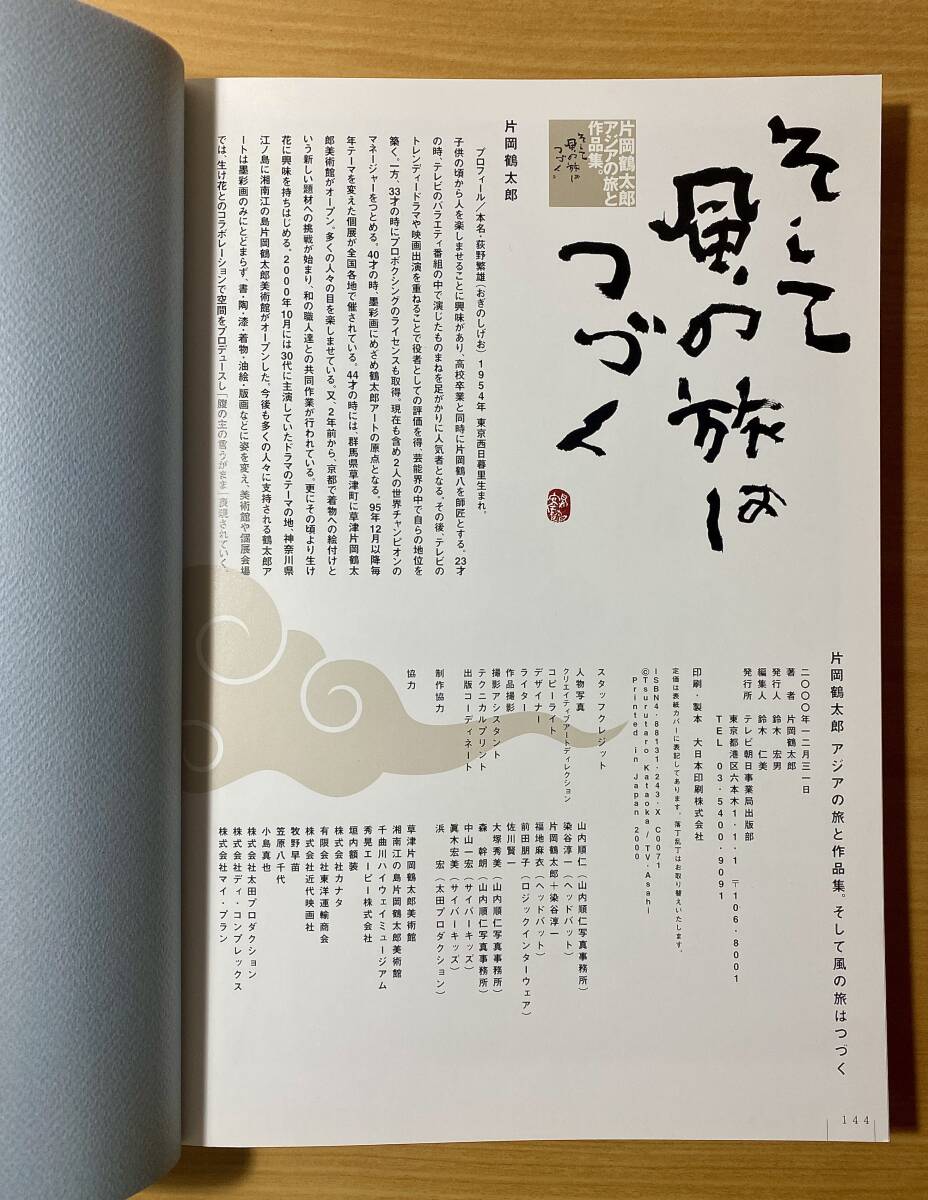 そして
風の旅は
つづく
片岡鶴太郎
アジアの旅と
作品集。
そして
風の旅は
つづく。
片岡鶴太郎
プロフィール／本名・荻野繁雄（おぎのしげお） 1954年 東京西日暮里生まれ。
子供の頃から人を楽しませることに興味があり、高校卒業と同時に片岡鶴八を師匠とする。23才
の時、テレビのバラエティ番組の中で演じたものまねを足がかりに人気者となる。その後、テレビの
トレンディードラマや映画出演を重ねることで役者としての評価を得、芸能界の中で自らの地位を
築く。一方、33才の時にプロボクシングのライセンスも取得。現在も含め2人の世界チャンピオンの
マネージャーをつとめる。40才の時、墨彩画にめざめ鶴太郎アートの原点となる。95年12月以降毎
年テーマを変えた個展が全国各地で催されている。44才の時には、群馬県草津町に草津片岡鶴太
郎美術館がオープン。多くの人々の目を楽しませている。又、2年前から、京都で着物への絵付けと
いう新しい題材への挑戦が始まり、和の職人達との共同作業が行われている。更にその頃より生け
花に興味を持ちはじめる。2000年10月には30代に主演していたドラマのテーマの地、神奈川県
江ノ島に湘南江の島片岡鶴太郎美術館がオープンした。今後も多くの人々に支持される鶴太郎ア
ートは墨彩画のみにとどまらず、書・陶・漆・着物・油絵・版画などに姿を変え、美術館や個展会場
では、生け花とのコラボレーションで空間をプロデュースし「腹の主の言うがまま」表現されていく。
片岡鶴太郎 アジアの旅と作品集。そして風の旅はつづく
二〇〇〇年一二月三一日
著 者 片岡鶴太郎
発行人 鈴木 宏男
編集人 鈴木 仁美
発行所 テレビ朝日事業局出版部
東京都港区六本木1-1-1 〒106-8001
TEL 03-5400-9091
印刷・製本 大日本印刷株式会社
定価は表紙カバーに表記してあります。落丁乱丁はお取り替えいたします。
ISBN4-88131-243-X C0071
©Tsurutaro Kataoka/TV Asahi
Printed in Japan 2000
スタッフクレジット
人物写真 山内順仁（山内順仁写真事務所）
クリエイティブアートディレクション 染谷淳一（ヘッドバット）
コピーライト 片岡鶴太郎＋染谷淳一
デザイナー 福地麻衣（ヘッドバット）
ライター 前田朋子（ロジックインターウェア）
作品撮影 佐川賢一
撮影アシスタント 大塚秀美（山内順仁写真事務所）
テクニカルプリント 森 幹朗（山内順仁写真事務所）
出版コーディネート 中山一宏（サイバーキッズ）
眞木宏美（サイバーキッズ）
制作協力 浜 宏（太田プロダクション）
協力 草津片岡鶴太郎美術館
湘南江の島片岡鶴太郎美術館
千曲川ハイウェイミュージアム
秀晃エービー株式会社
垣内額装
株式会社カナタ
有限会社東洋運輸商会
株式会社近代映画社
牧野早苗
笠原八千代
小島真也
株式会社太田プロダクション
株式会社ディ・コンプレックス
株式会社マイ・プラン
144